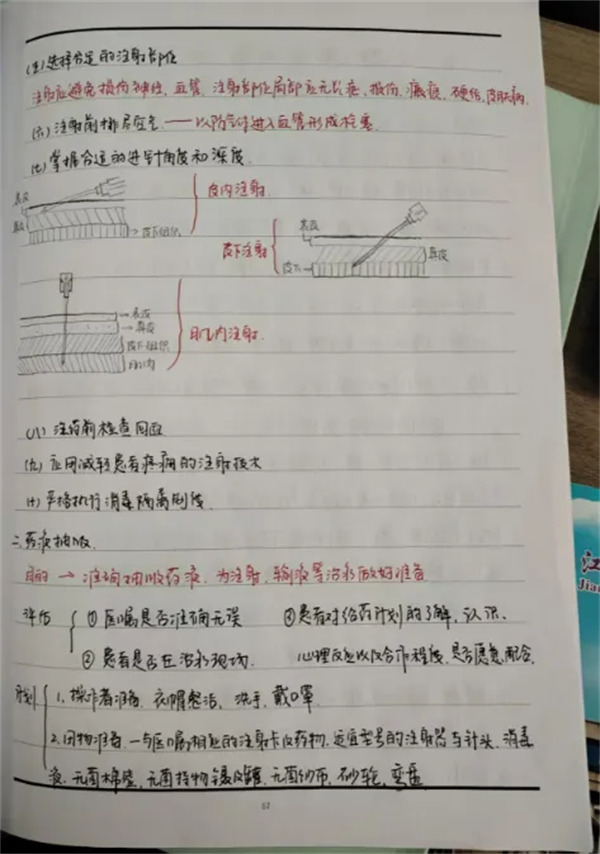 (五)选择合适的注射部位
注射应避免损伤神经、血管、注射部位局部应无炎症、损伤、瘢痕、硬结、皮肤病.
(六)注射前排尽空气——以防气体进入血管形成栓塞.
(七)掌握合适的进针角度和深度.
表皮
真皮
皮下组织
皮内注射.
皮下注射
表皮
真皮
皮下
表皮
真皮
皮下组织
肌肉
肌内注射.
(八)注药前检查回血
(九)应用减轻患者疼痛的注射技术
(十)严格执行消毒隔离制度.
二.药液抽吸.
目的→准确抽吸药液,为注射、输液等治疗做好准备
评估
①医嘱是否准确无误
③患者对给药计划的了解、认识.
②患者是否在治疗现场.
心理反应以及合作程度,是否愿意配合.
计划
1.操作者准备,衣帽整洁,洗手,戴口罩
2.用物准备,—与医嘱相应的注射卡及药物.适宜型号的注射器与针头、消毒
液、无菌棉签、无菌持物镊及罐、无菌纱布、砂轮、弯盘
57
江
Jian